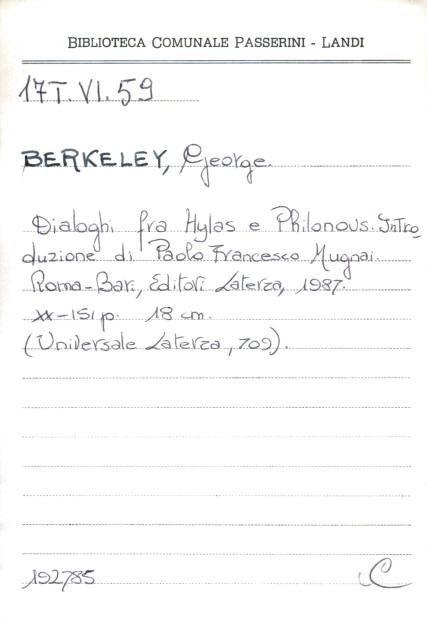 BIBLIOTECA COMUNALE PASSERINI - LANDI
17T.VI.59
BERKELEY, George.
Dialoghi fra Hylas e Philonous. Intro_
duzione di Paolo Francesco Mugnai.
Roma-Bari, Editori Laterza, 1987.
XX-151 p. 18 cm.
(Universale Laterza, 709).
192785 C